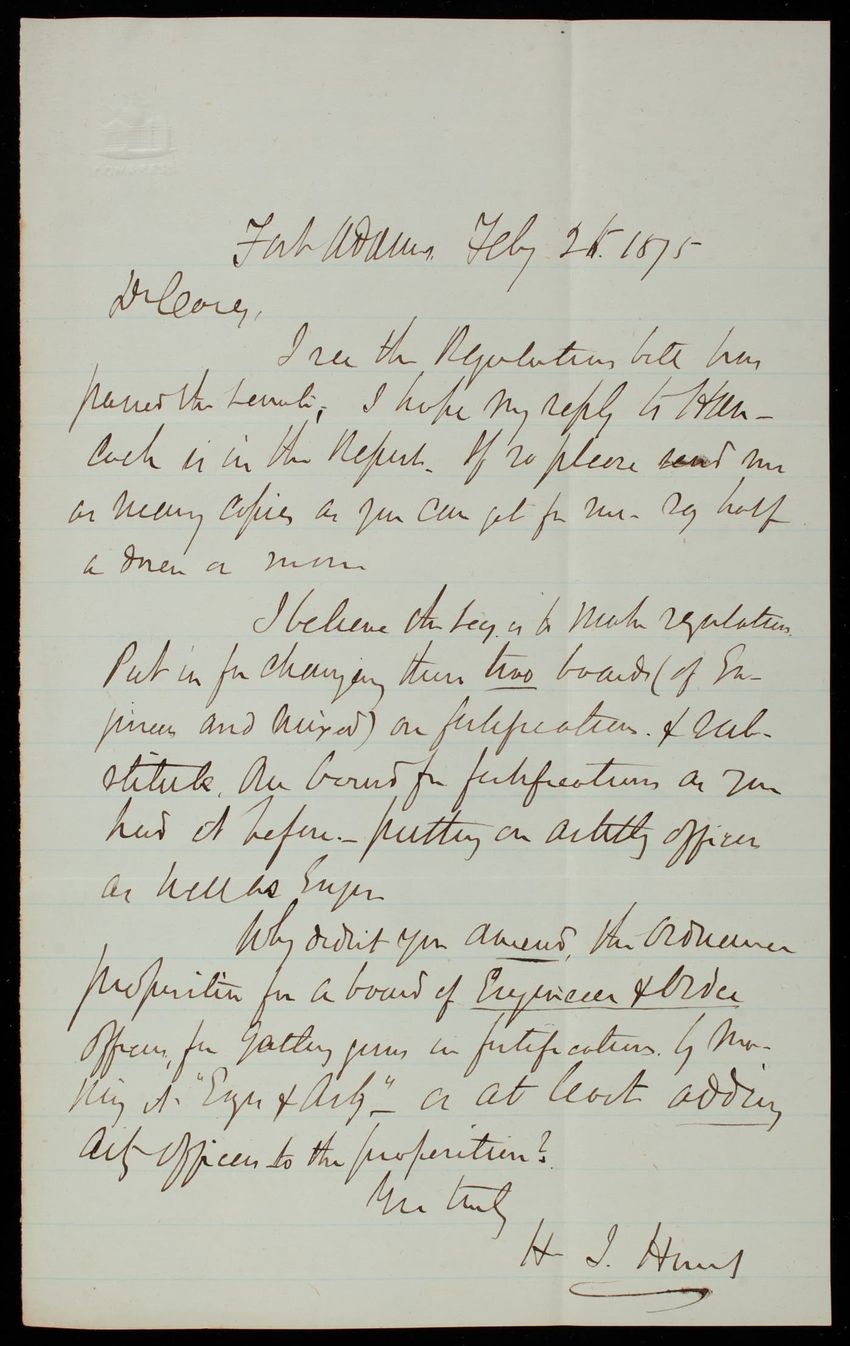 CONGRESS
Fort Adams, Feby 25. 1875
Dr Casey,
I see the Regulations bill has
passed the Senate; I hope my reply to Han-
cock is in the Report. If so please send me
as many copies as you can get for me - say half
a dozen or more
I believe the Secy. is to make regulations.
Put in for changing these two boards (of En-
gineers and mixed) on fortifications. & sub-
stitute. One board for fortifications as you
had it before. - putting on Artilly officers
as well as Engrs
Why didn't you amend, the Ordnance
proposition for a board of Engineer & Ordce
officers, for Gatling guns in fortifications. by ma-
king it "Engr & Arty" - or at least adding
Arty officers to the proposition?
Yrs truly
H J. Hunt